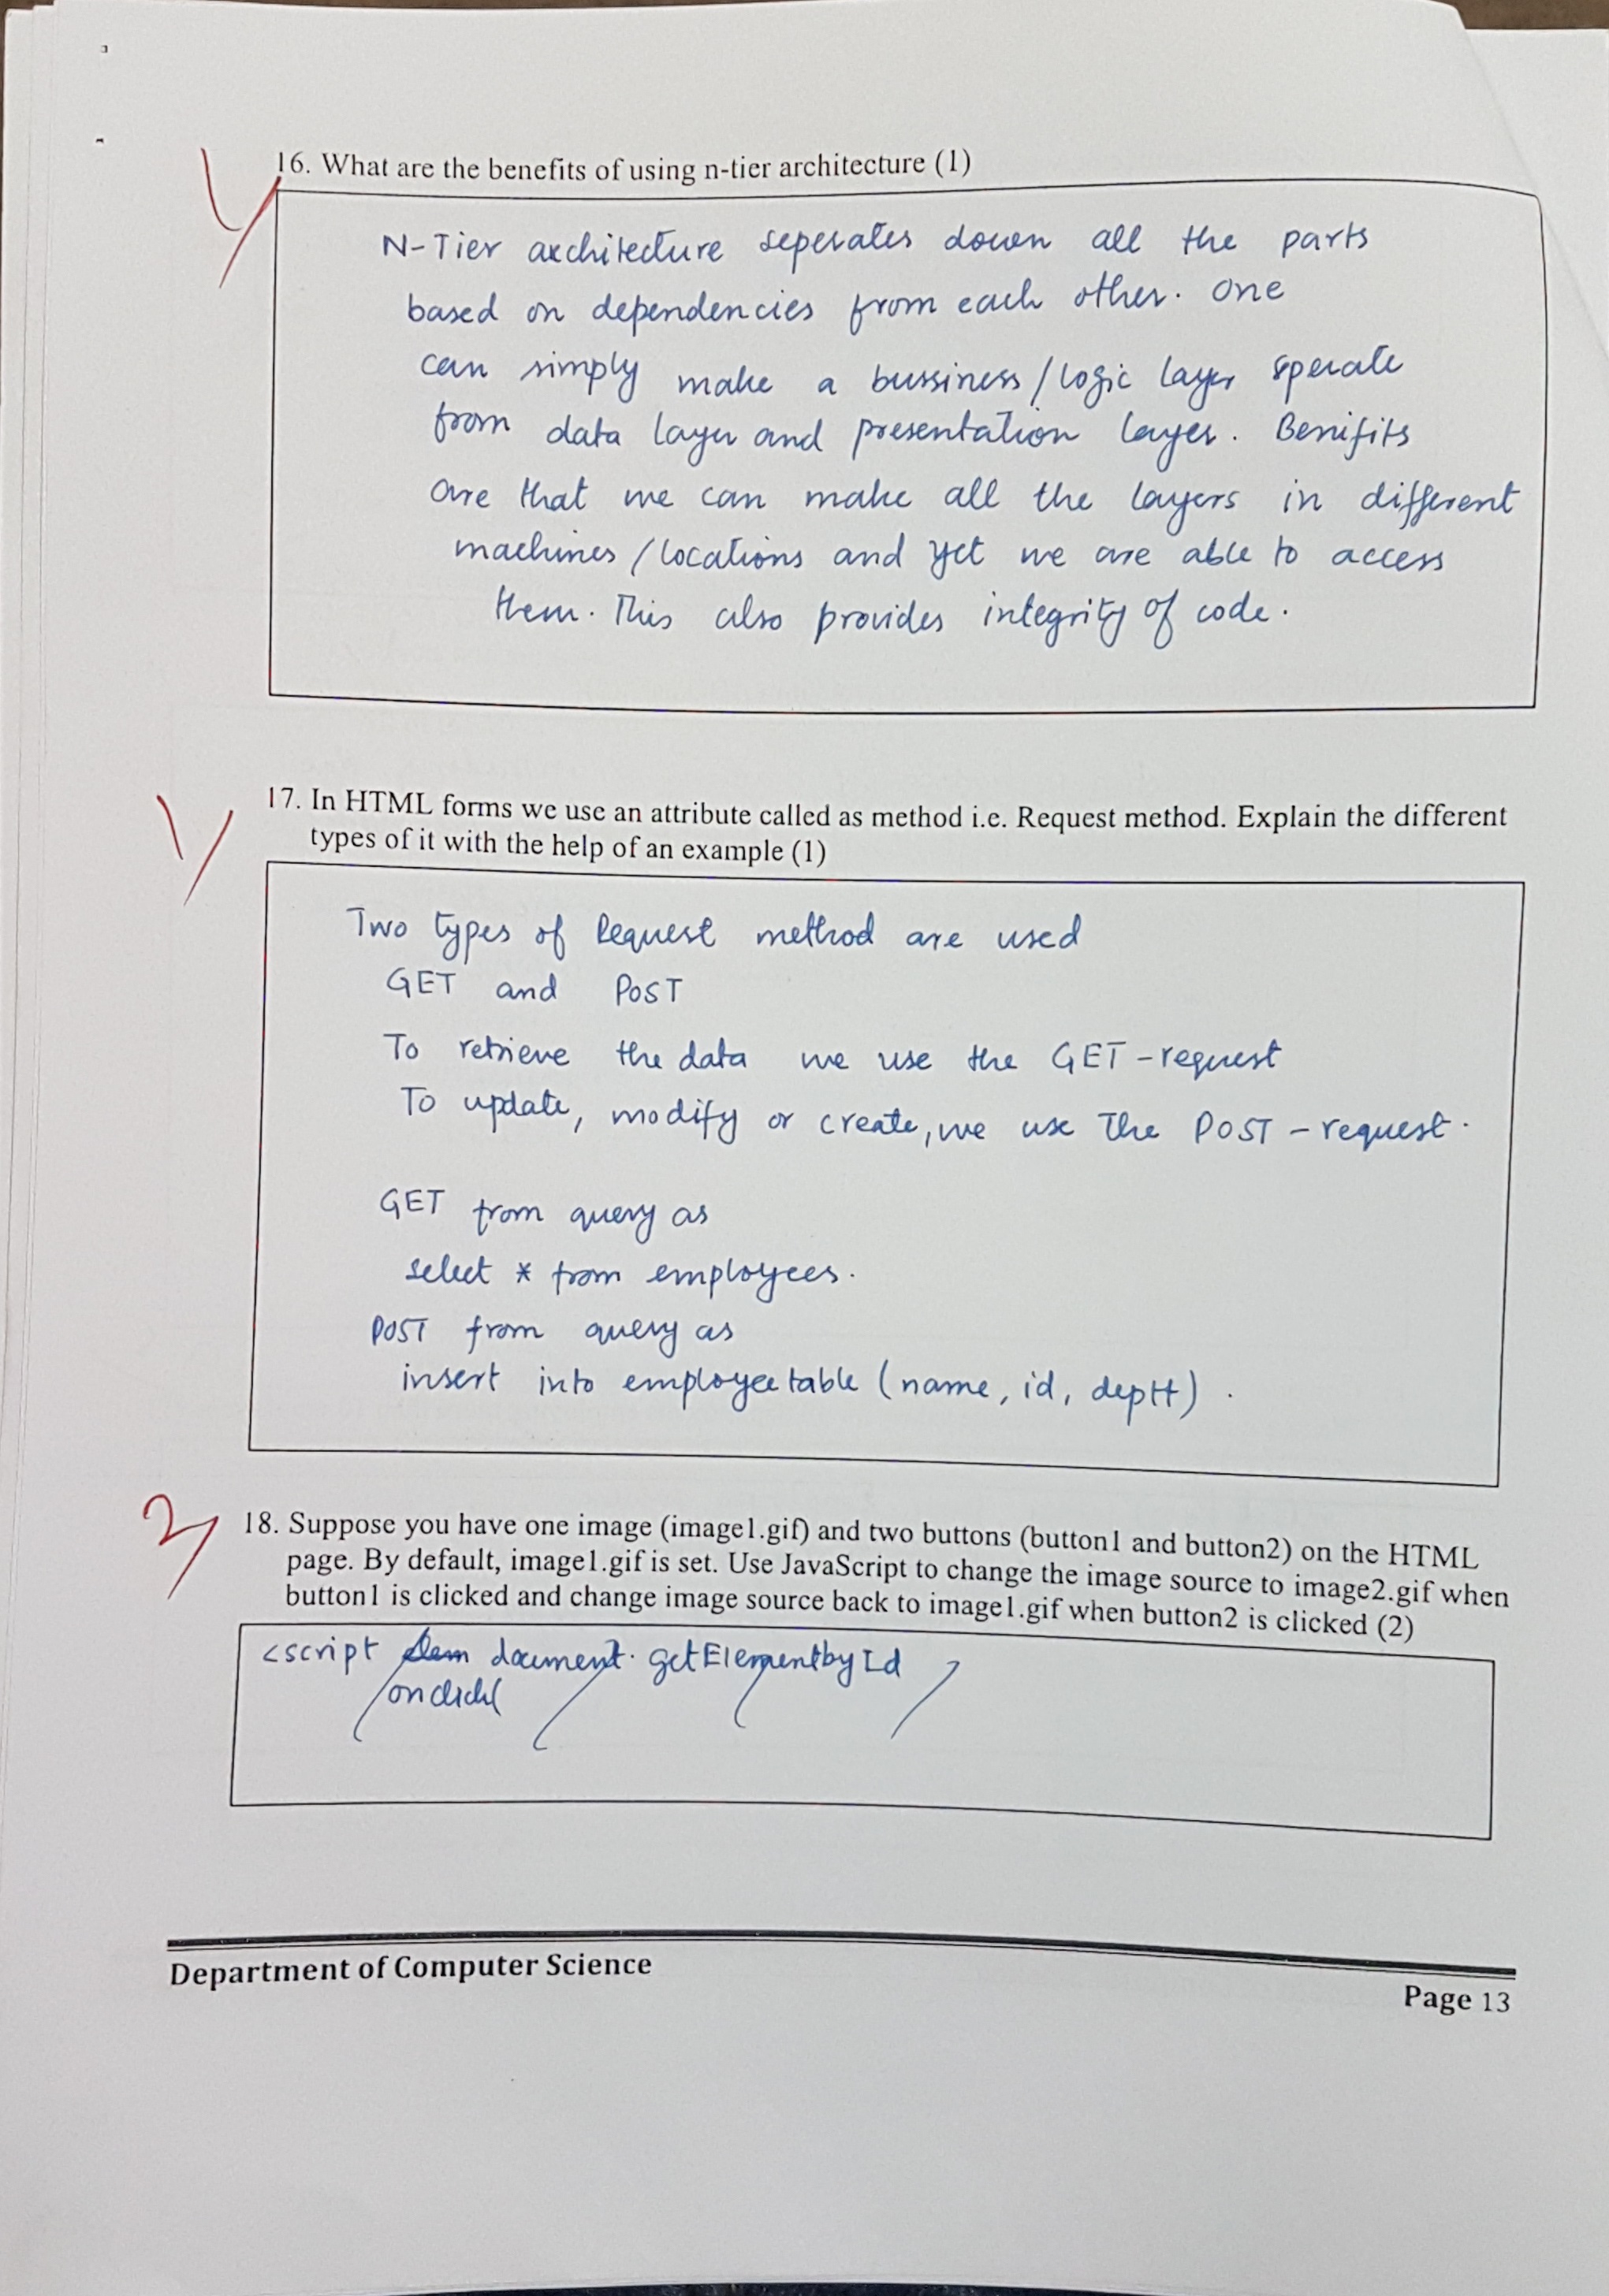 16. What are the benefits of using n-tier architecture (1)
N-Tier architecture seperates down all the parts
based on dependencies from each other. One
can simply make a bussiness/logic layer sperate
from data layer and presentation layer. Benifits
are that we can make all the layers in different
machines/locations and yet we are able to access
them. This also provides integrity of code.
1/
17. In HTML forms we use an attribute called as method i.e. Request method. Explain the different
types of it with the help of an example (1)
Two types of Request method are used
GET and POST
To retrieve the data we use the GET-request
To update, modify or create, we use the POST-request.
GET from query as
select * from employees.
POST from query as
insert into employee table (name, id, deptt).
2/
18. Suppose you have one image (image1.gif) and two buttons (button1 and button2) on the HTML
page. By default, image1.gif is set. Use JavaScript to change the image source to image2.gif when
button1 is clicked and change image source back to image1.gif when button2 is clicked (2)
<script document.getElementbyId
Department of Computer Science
Page 13